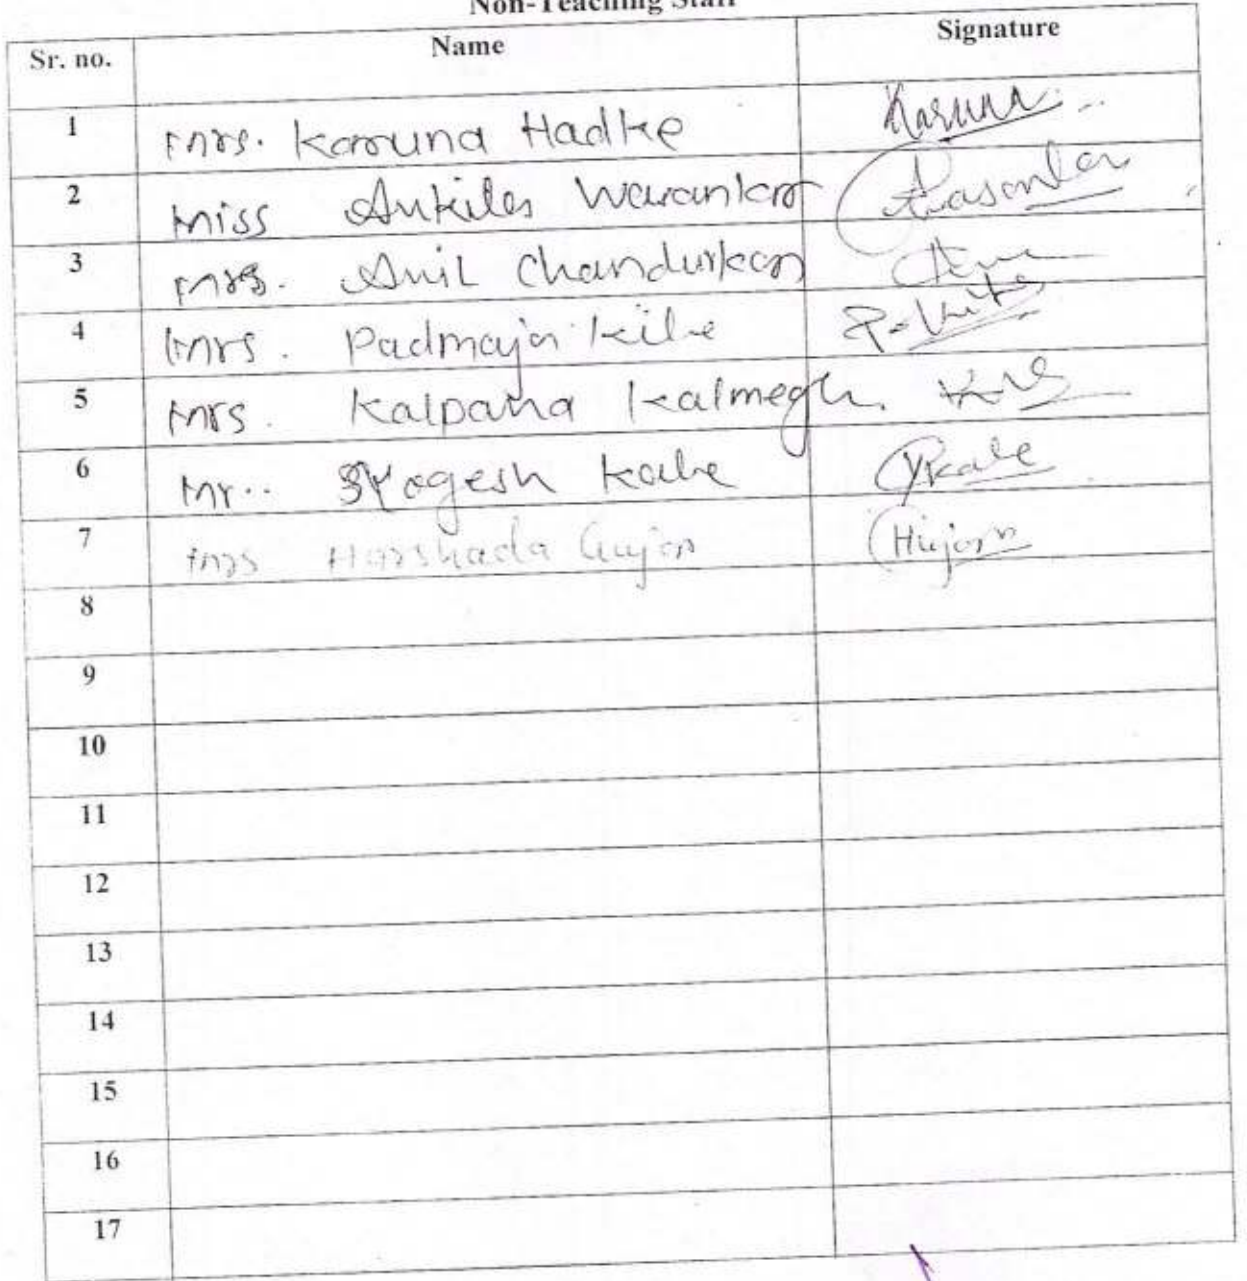 Non-Teaching Staff
Sr. no. Name Signature
1 Mrs. Karuna Hadke Karuna
2 Miss Ankita Warankar
3 Mrs. Anil Chandurkar
4 Mrs. Padmaja Kile
5 Mrs. Kalpana Kalmegh.
6 Mr.. Yogesh Kale YKale
7 Mrs Harshada Gujar
8
9
10
11
12
13
14
15
16
17